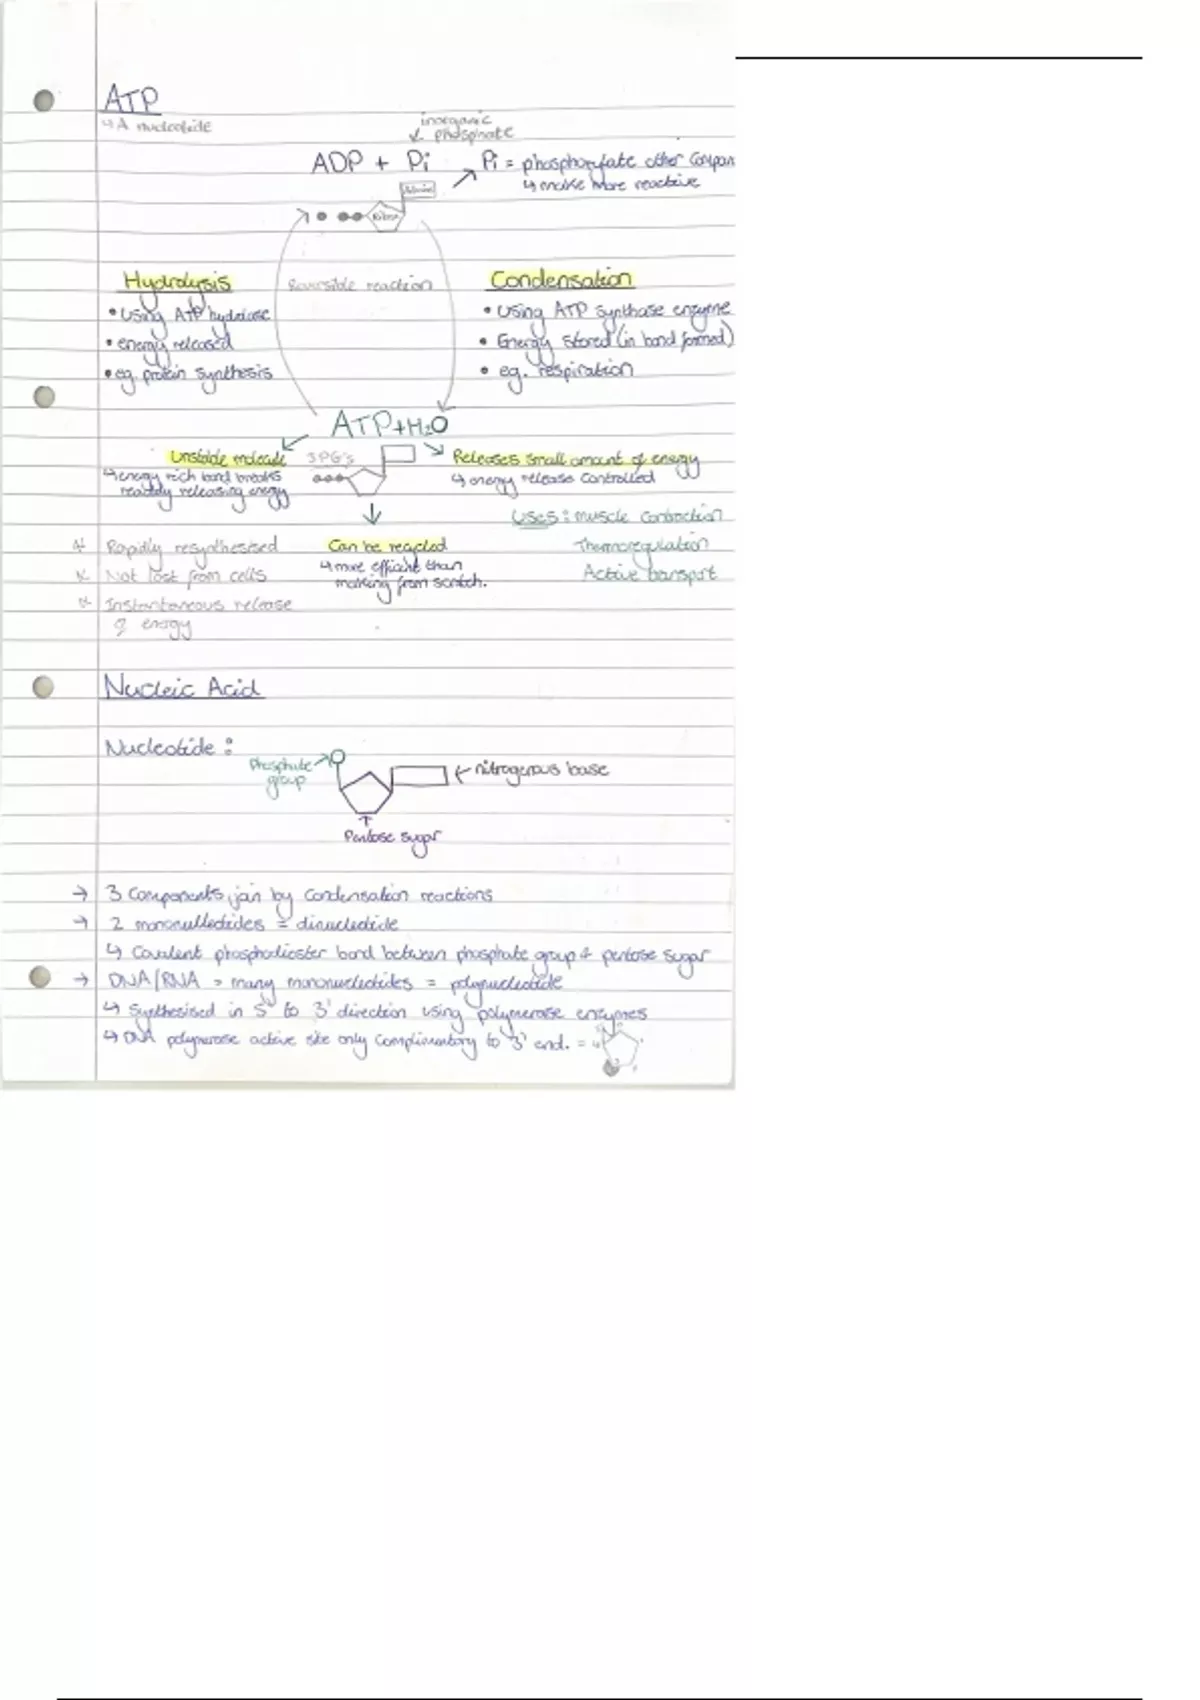 ATP
↳ A nucleotide
inorganic
↙ phosphate
ADP + Pi
Pi = phosphorylate other compoun
↳ make more reactive
Adenine
Ribose
Hydrolysis
• Using ATP hydrolase
• energy released
• eg. protein synthesis
Reversible reaction
Condensation
• Using ATP synthase enzyme
• Energy stored (in bond formed)
• eg. respiration
ATP+H₂O
Unstable molecule
↳ energy rich bond breaks
readily releasing energy
3PG's
Releases small amount of energy
↳ energy release controlled
Uses: muscle contraction
Thermoregulation
Active transport
* Rapidly resynthesised
* Not lost from cells
* Instantaneous release
of energy
Can be recycled
↳ more efficient than
making from scratch.
Nucleic Acid
Nucleotide :
Phosphate
group
← nitrogenous base
Pentose sugar
→ 3 Components join by condensation reactions
→ 2 mononucleotides = dinucleotide
↳ Covalent phosphodiester bond between phosphate group & pentose sugar
→ DNA/RNA = many mononucleotides = polynucleotide
↳ Synthesised in 5' to 3' direction using polymerase enzymes
↳ DNA polymerase active site only complimentary to 3' end. =